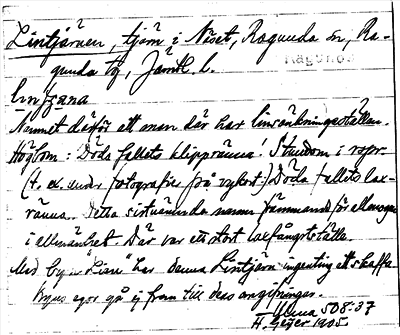 Lintjärnen, tjärn i Näset, Ragunda sn, Ra-
gunda tg, Jämtl. l.
RAGUNDA
Namnet därför att man där har linsänkningsställen.
Högbom: Döda fallets klippränna! Stundom i repr.
(t. ex. under fotografier på vykort) Döda fallets lax-
ränna. Detta sistnämnda namn främmande för allmogen
i allmänhet. Där var ett stort laxfångstställe.
Med byn "Lien" har denna Lintjärn ingenting att skaffa
byns egor gå ej fram till dess angifningar.
508:37
H. Geijer 1905